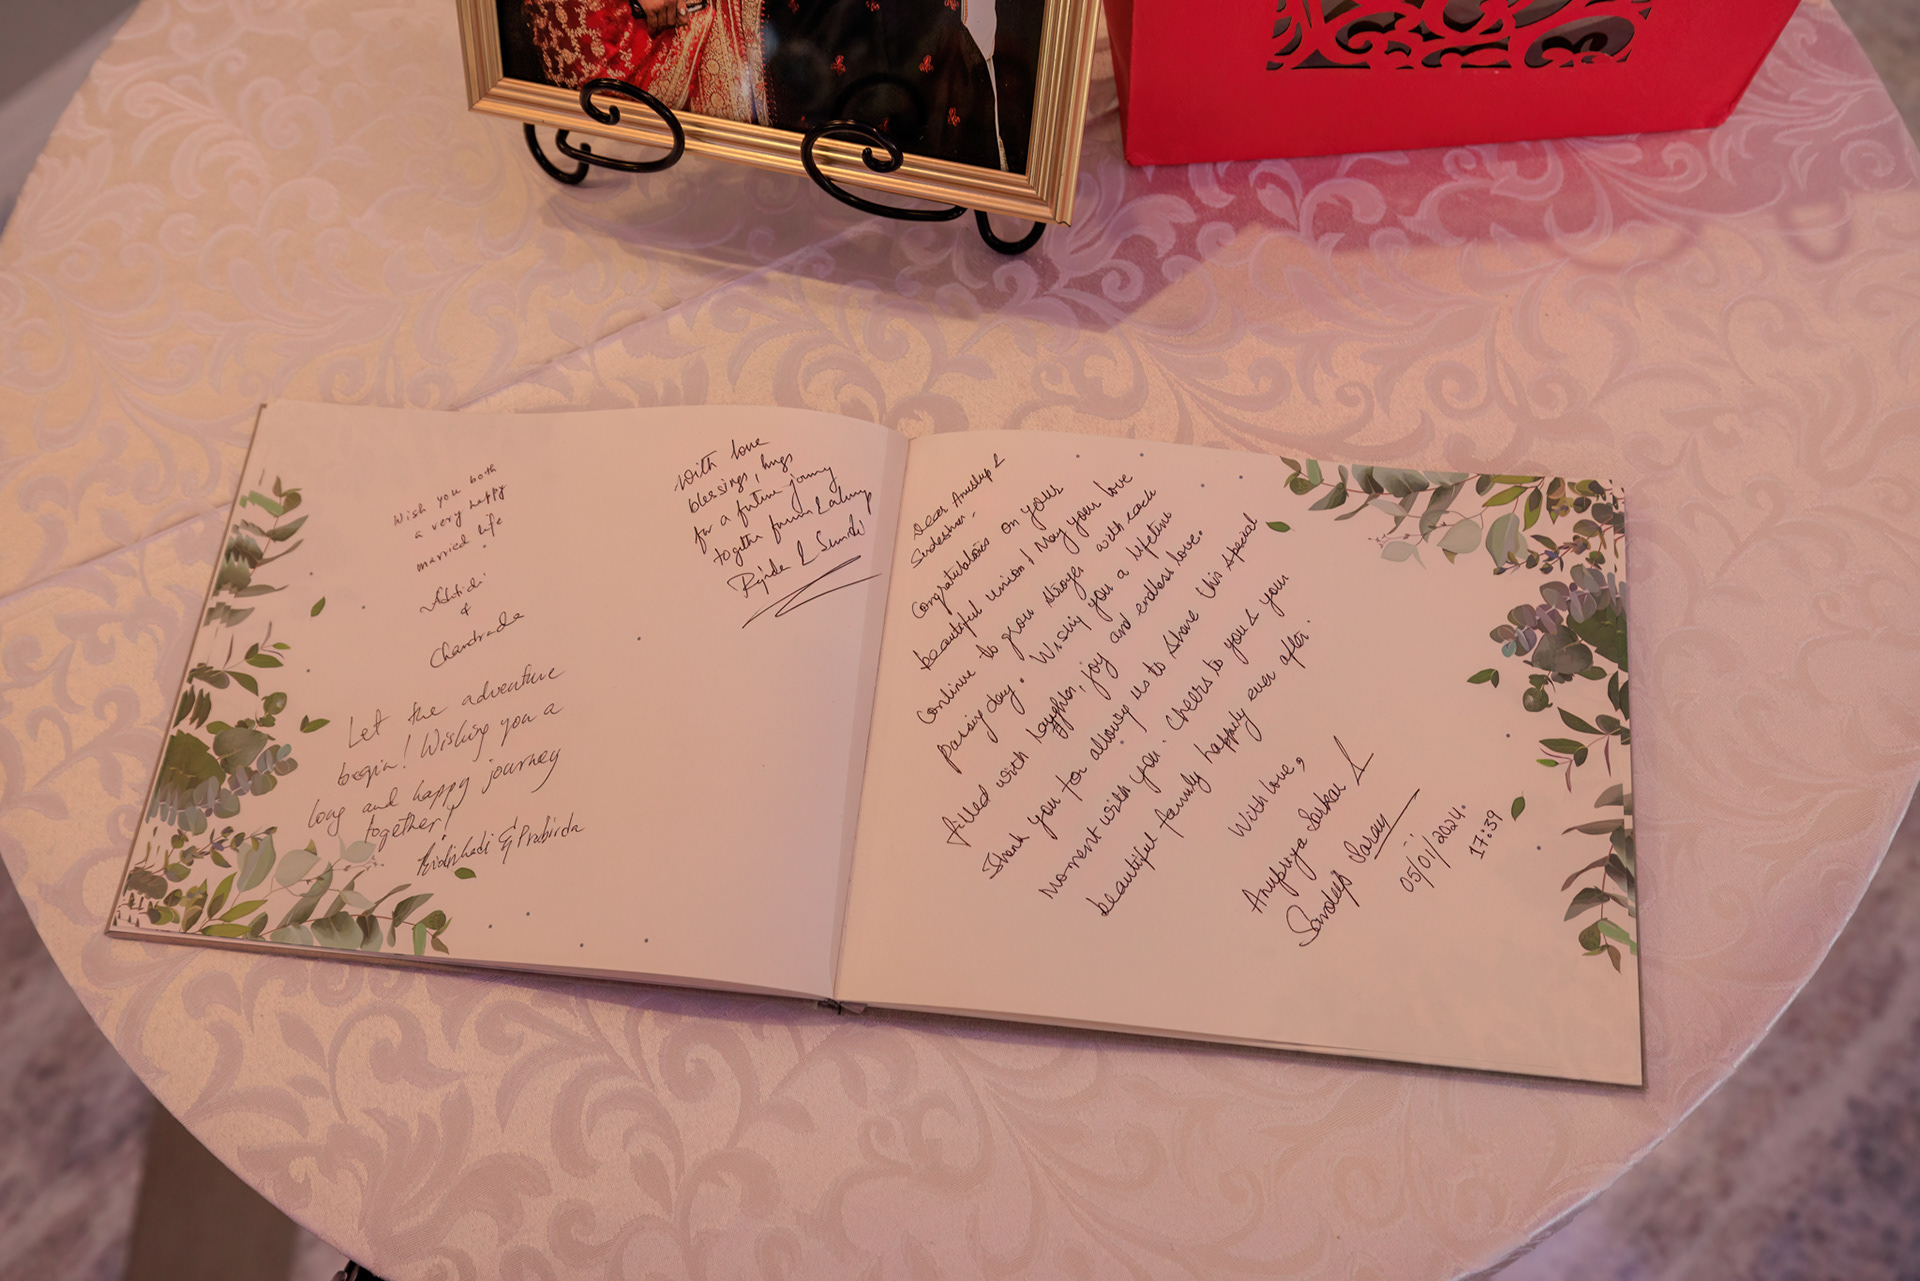 Wish you both
a very happy
married life.
&
Chandrada
Let the adventure
begin! Wishing you a
long and happy journey
together!
& Prabirda
With love
blessings, hugs
for a future journey
together from
&
Dear Anustup &
Congratulations on your
beautiful union! May your love
continue to grow stronger with each
passing day. Wishing you a lifetime
filled with laughter, joy and endless love.
Thank you for allowing us to share this special
moment with you. Cheers to you & your
beautiful family happily ever after.
With love,
Anupriya Sarkar &
Sandeep
05/01/2024.
17:39